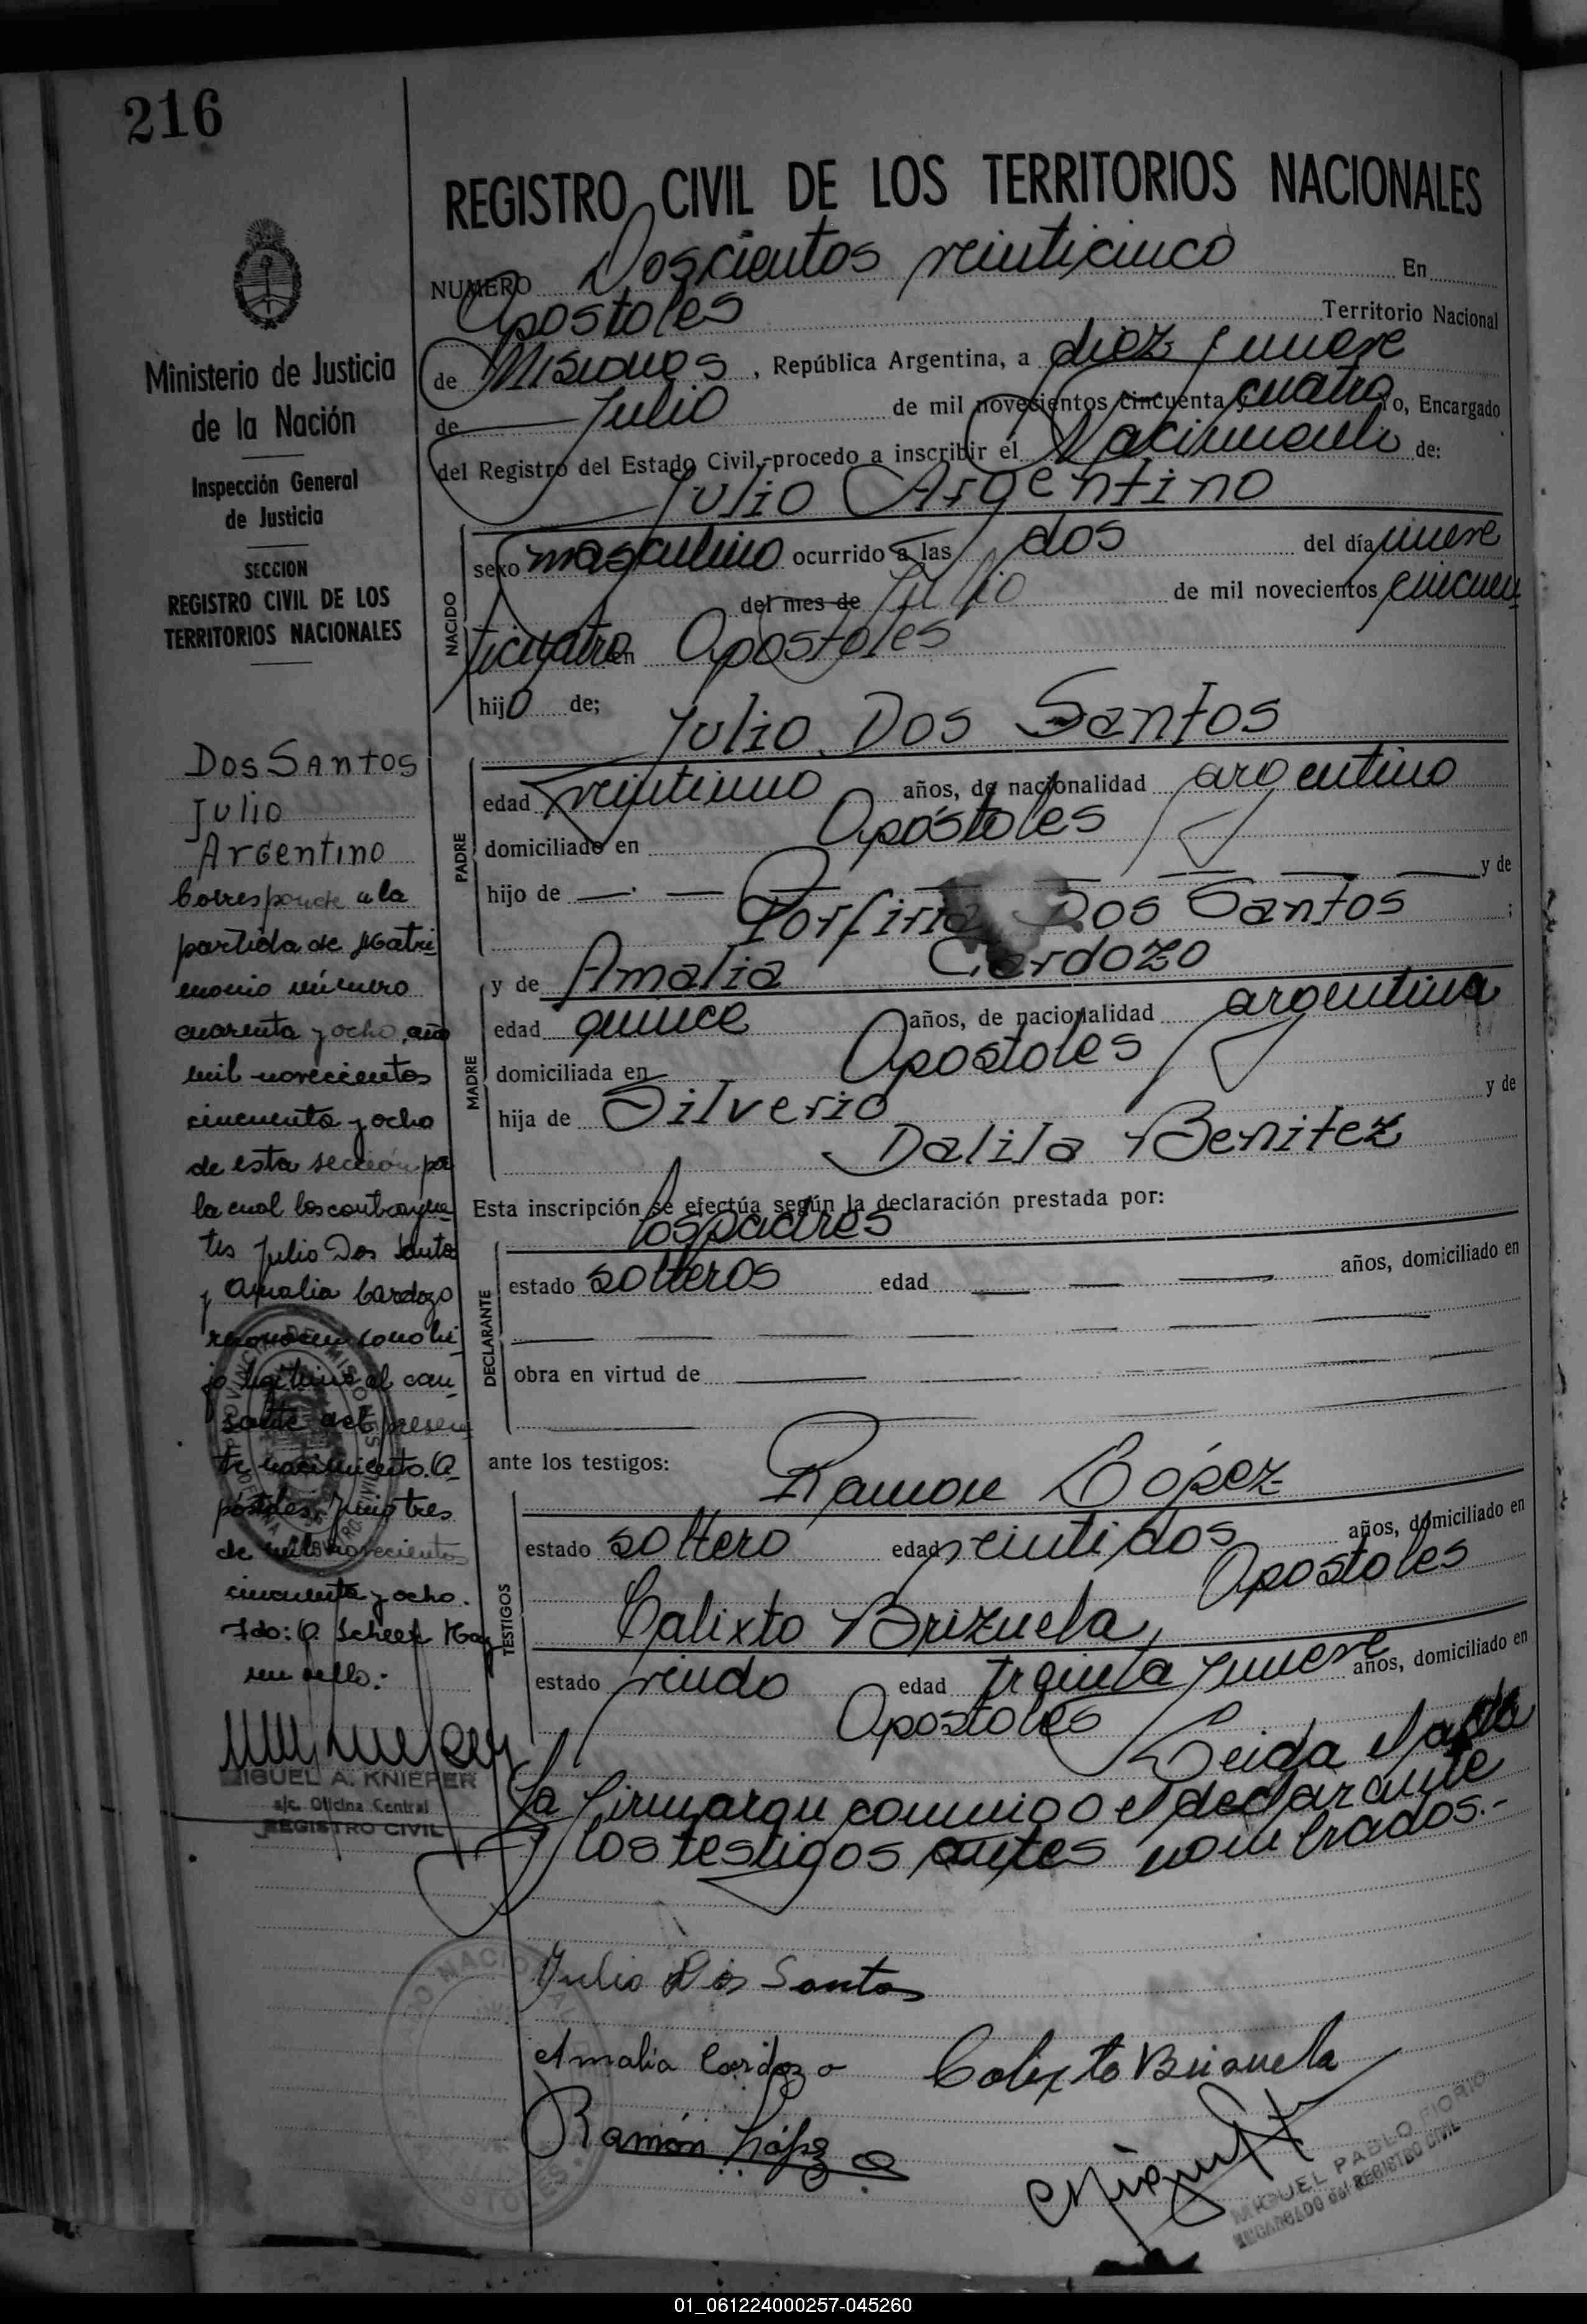 216
REGISTRO CIVIL DE LOS TERRITORIOS NACIONALES
NUMERO Doscientos veinticinco En
Apostoles Territorio Nacional
de Misiones, República Argentina, a diez y nueve
de Julio de mil novecientos cincuenta y cuatro, Encargado
del Registro del Estado Civil, procedo a inscribir el Nacimiento de:
Julio Argentino
NACIDO
sexo masculino ocurrido a las dos del día nueve
del mes de Julio de mil novecientos cincuen
ticuatro en Apostoles
hijo de;
Julio Dos Santos
PADRE
edad veintiuno años, de nacionalidad argentino
domiciliado en Apóstoles
hijo de y de
Porfiria Dos Santos ;
y de Amalia Cardozo
MADRE
edad quince años, de nacionalidad argentina
domiciliada en Apostoles
hija de Silverio y de
Dalila Benitez
Esta inscripción se efectúa según la declaración prestada por:
los padres
DECLARANTE
estado solteros edad años, domiciliado en
obra en virtud de
ante los testigos:
Ramon López
TESTIGOS
estado soltero edad veintidos años, domiciliado en
Apostoles
Calixto Brizuela,
estado viudo edad treinta y nueve años, domiciliado en
Apostoles Leida el acta
la firmaron conmigo el declarante
y los testigos antes nombrados.-
Julio Dos Santos
Amalia Cardozo Calixto Brizuela
Ramón López
MIGUEL PABLO FIORIO
ENCARGADO del REGISTRO CIVIL
Ministerio de Justicia
de la Nación
Inspección General
de Justicia
SECCION
REGISTRO CIVIL DE LOS
TERRITORIOS NACIONALES
Dos Santos
Julio
Argentino
Corresponde a la
partida de Matri
monio número
cuarenta y ocho, año
mil novecientos
cincuenta y ocho
de esta sección por
la cual los contrayen
tes Julio Dos Santos
y Amalia Cardozo
reconocen como hi
jo legítimo al cau
sante del presen
te nacimiento. A
póstoles, Junio tres
de mil novecientos
cincuenta y ocho.
Fdo: A. Scheef Hay
un sello:
MIGUEL A. KNIEPER
a/c. Oficina Central
REGISTRO CIVIL
01_061224000257-045260